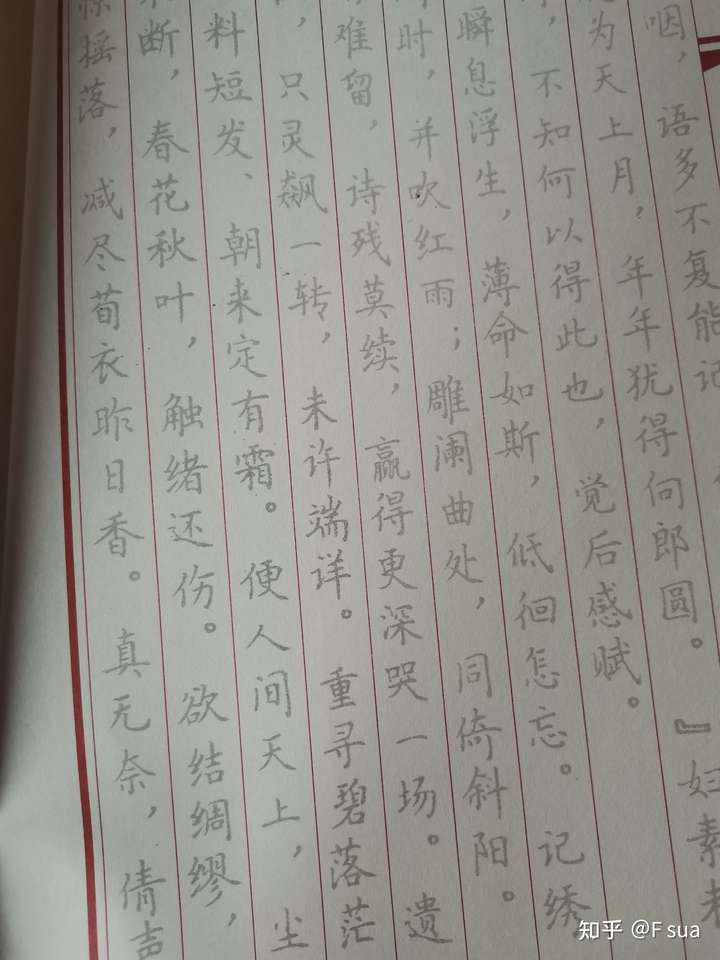 咽，语多不复能记
为天上月，年年犹得向郎圆。』妇素未
，不知何以得此也，觉后感赋。
瞬息浮生，薄命如斯，低徊怎忘。记绣
时，并吹红雨；雕阑曲处，同倚斜阳。
难留，诗残莫续，赢得更深哭一场。遗
，只灵飙一转，未许端详。重寻碧落茫
料短发、朝来定有霜。便人间天上，尘
断，春花秋叶，触绪还伤。欲结绸缪，
摇落，减尽荀衣昨日香。真无奈，倩声
知乎 @F sua